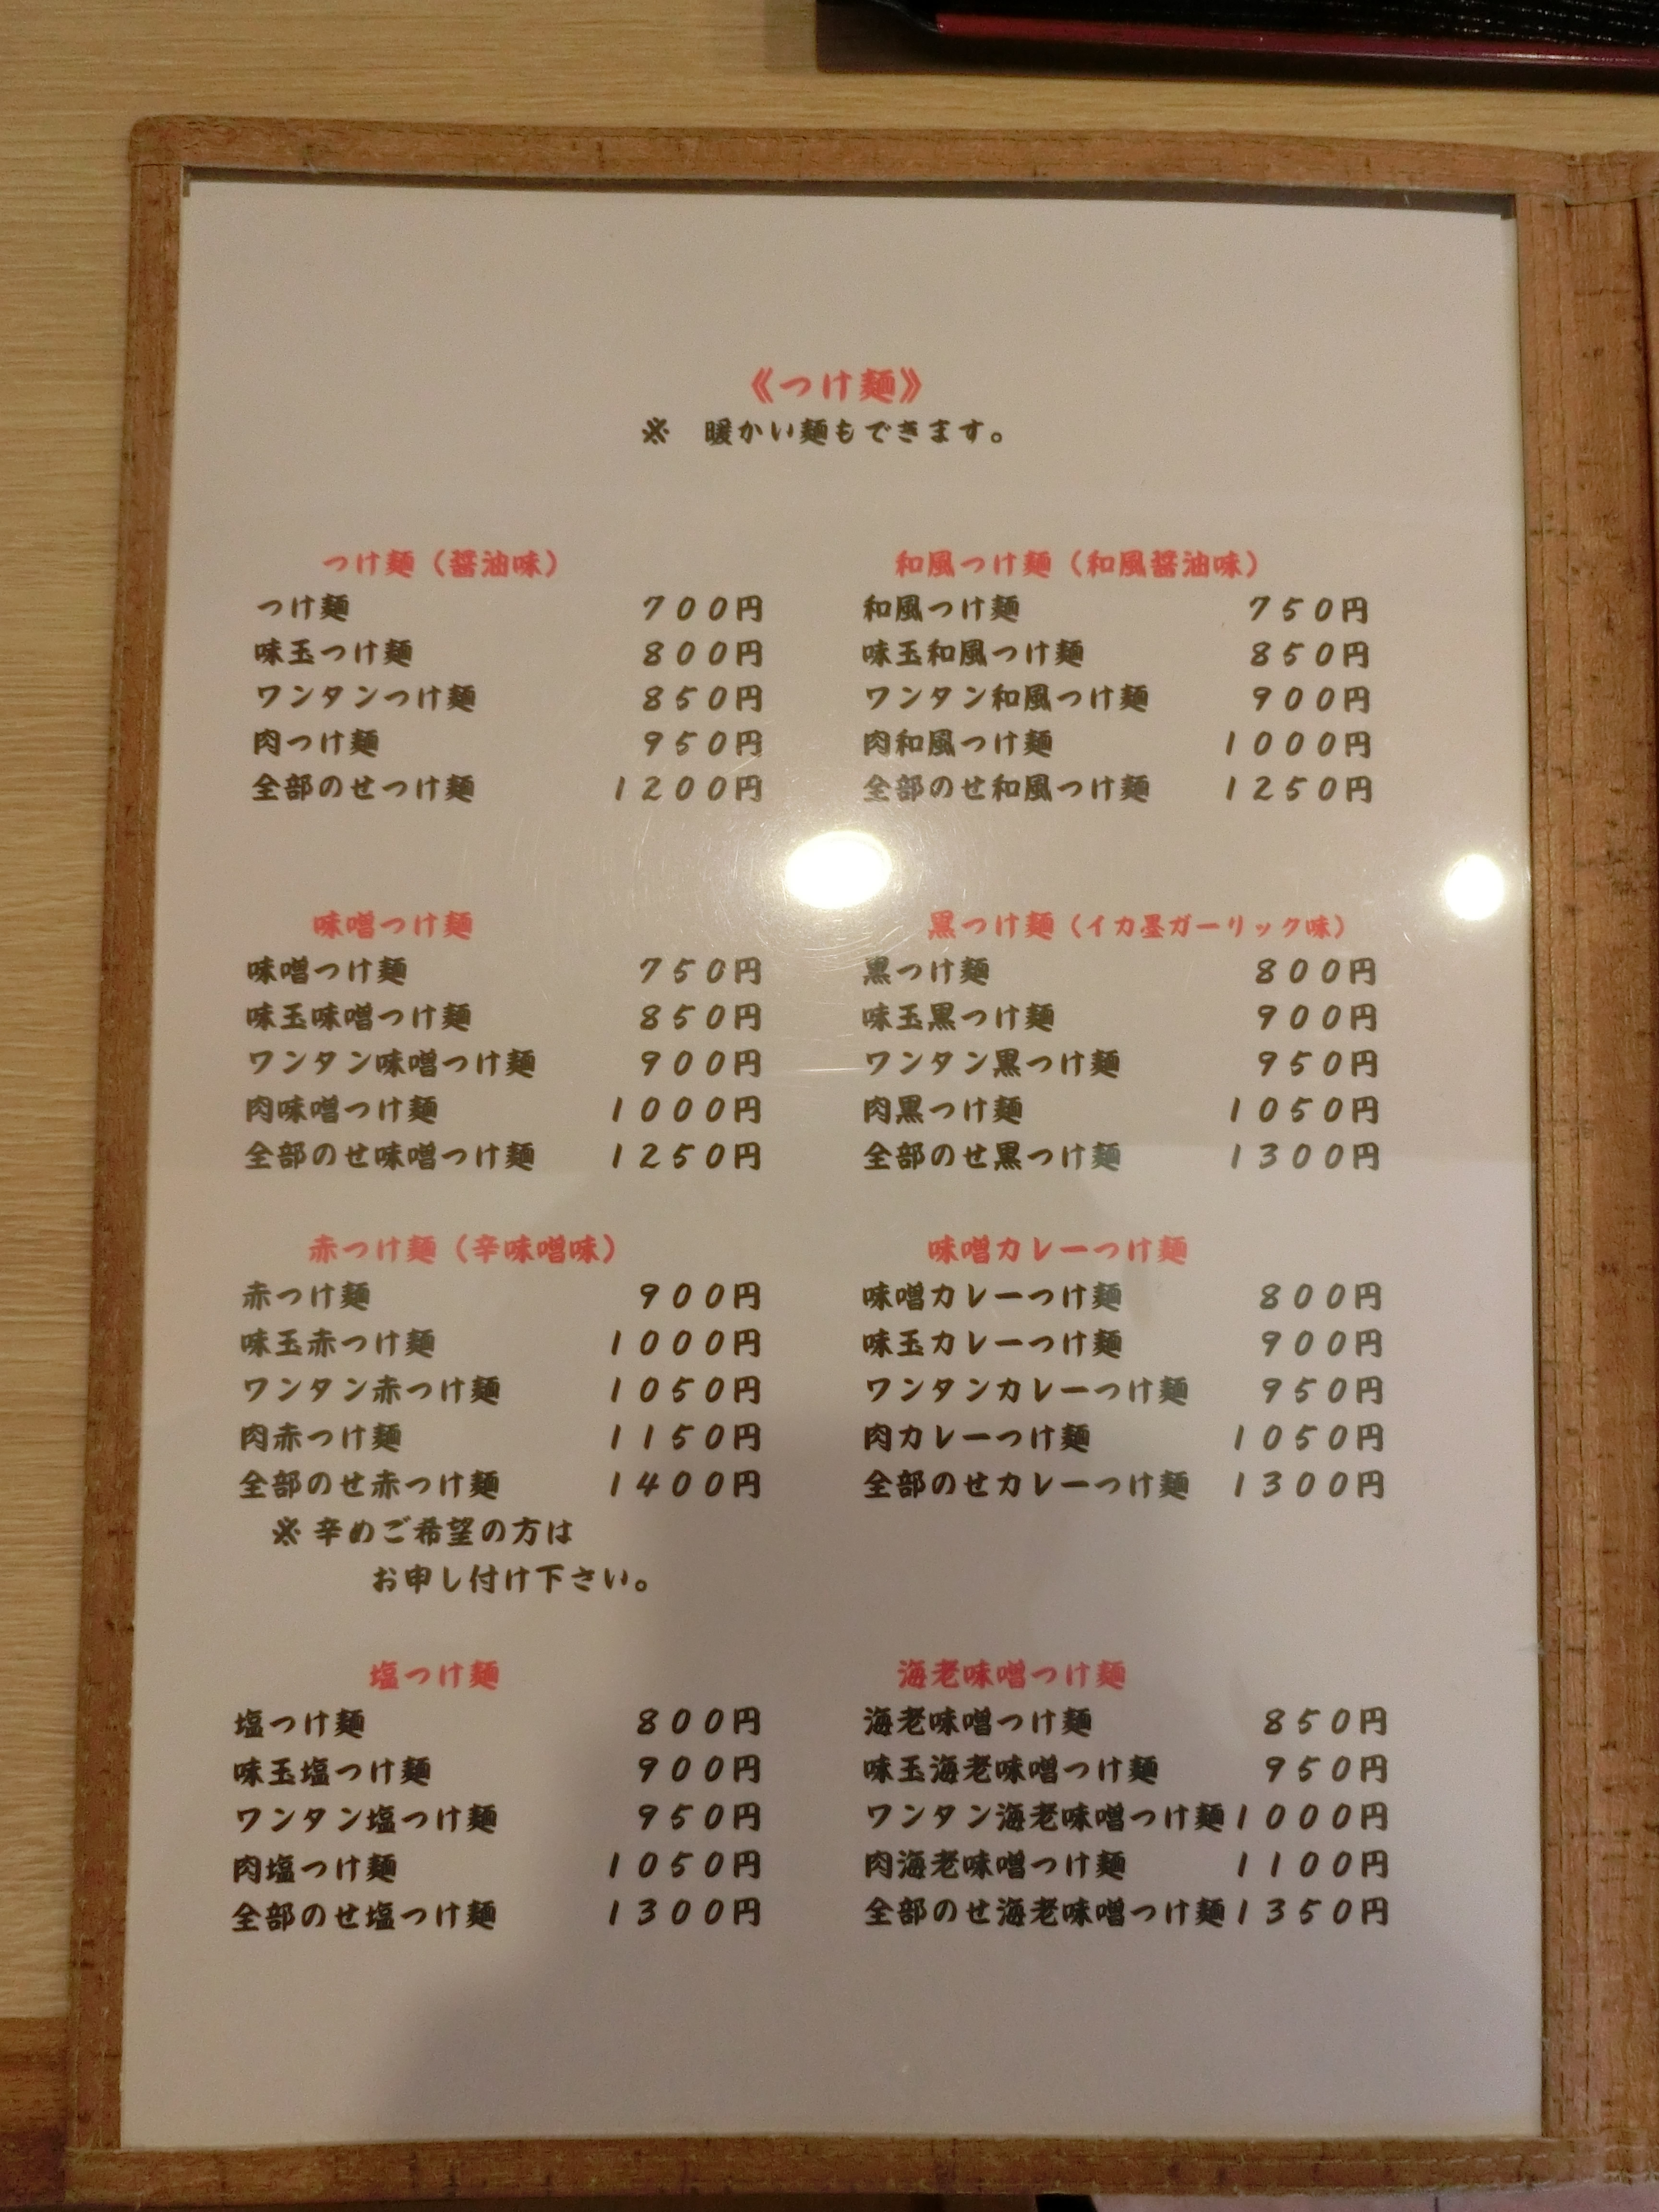 《つけ麺》
※ 暖かい麺もできます。
つけ麺（醤油味）
つけ麺 700円
味玉つけ麺 800円
ワンタンつけ麺 850円
肉つけ麺 950円
全部のせつけ麺 1200円
和風つけ麺（和風醤油味）
和風つけ麺 750円
味玉和風つけ麺 850円
ワンタン和風つけ麺 900円
肉和風つけ麺 1000円
全部のせ和風つけ麺 1250円
味噌つけ麺
味噌つけ麺 750円
味玉味噌つけ麺 850円
ワンタン味噌つけ麺 900円
肉味噌つけ麺 1000円
全部のせ味噌つけ麺 1250円
黒つけ麺（イカ墨ガーリック味）
黒つけ麺 800円
味玉黒つけ麺 900円
ワンタン黒つけ麺 950円
肉黒つけ麺 1050円
全部のせ黒つけ麺 1300円
赤つけ麺（辛味噌味）
赤つけ麺 900円
味玉赤つけ麺 1000円
ワンタン赤つけ麺 1050円
肉赤つけ麺 1150円
全部のせ赤つけ麺 1400円
※辛めご希望の方は
お申し付け下さい。
味噌カレーつけ麺
味噌カレーつけ麺 800円
味玉カレーつけ麺 900円
ワンタンカレーつけ麺 950円
肉カレーつけ麺 1050円
全部のせカレーつけ麺 1300円
塩つけ麺
塩つけ麺 800円
味玉塩つけ麺 900円
ワンタン塩つけ麺 950円
肉塩つけ麺 1050円
全部のせ塩つけ麺 1300円
海老味噌つけ麺
海老味噌つけ麺 850円
味玉海老味噌つけ麺 950円
ワンタン海老味噌つけ麺1000円
肉海老味噌つけ麺 1100円
全部のせ海老味噌つけ麺1350円